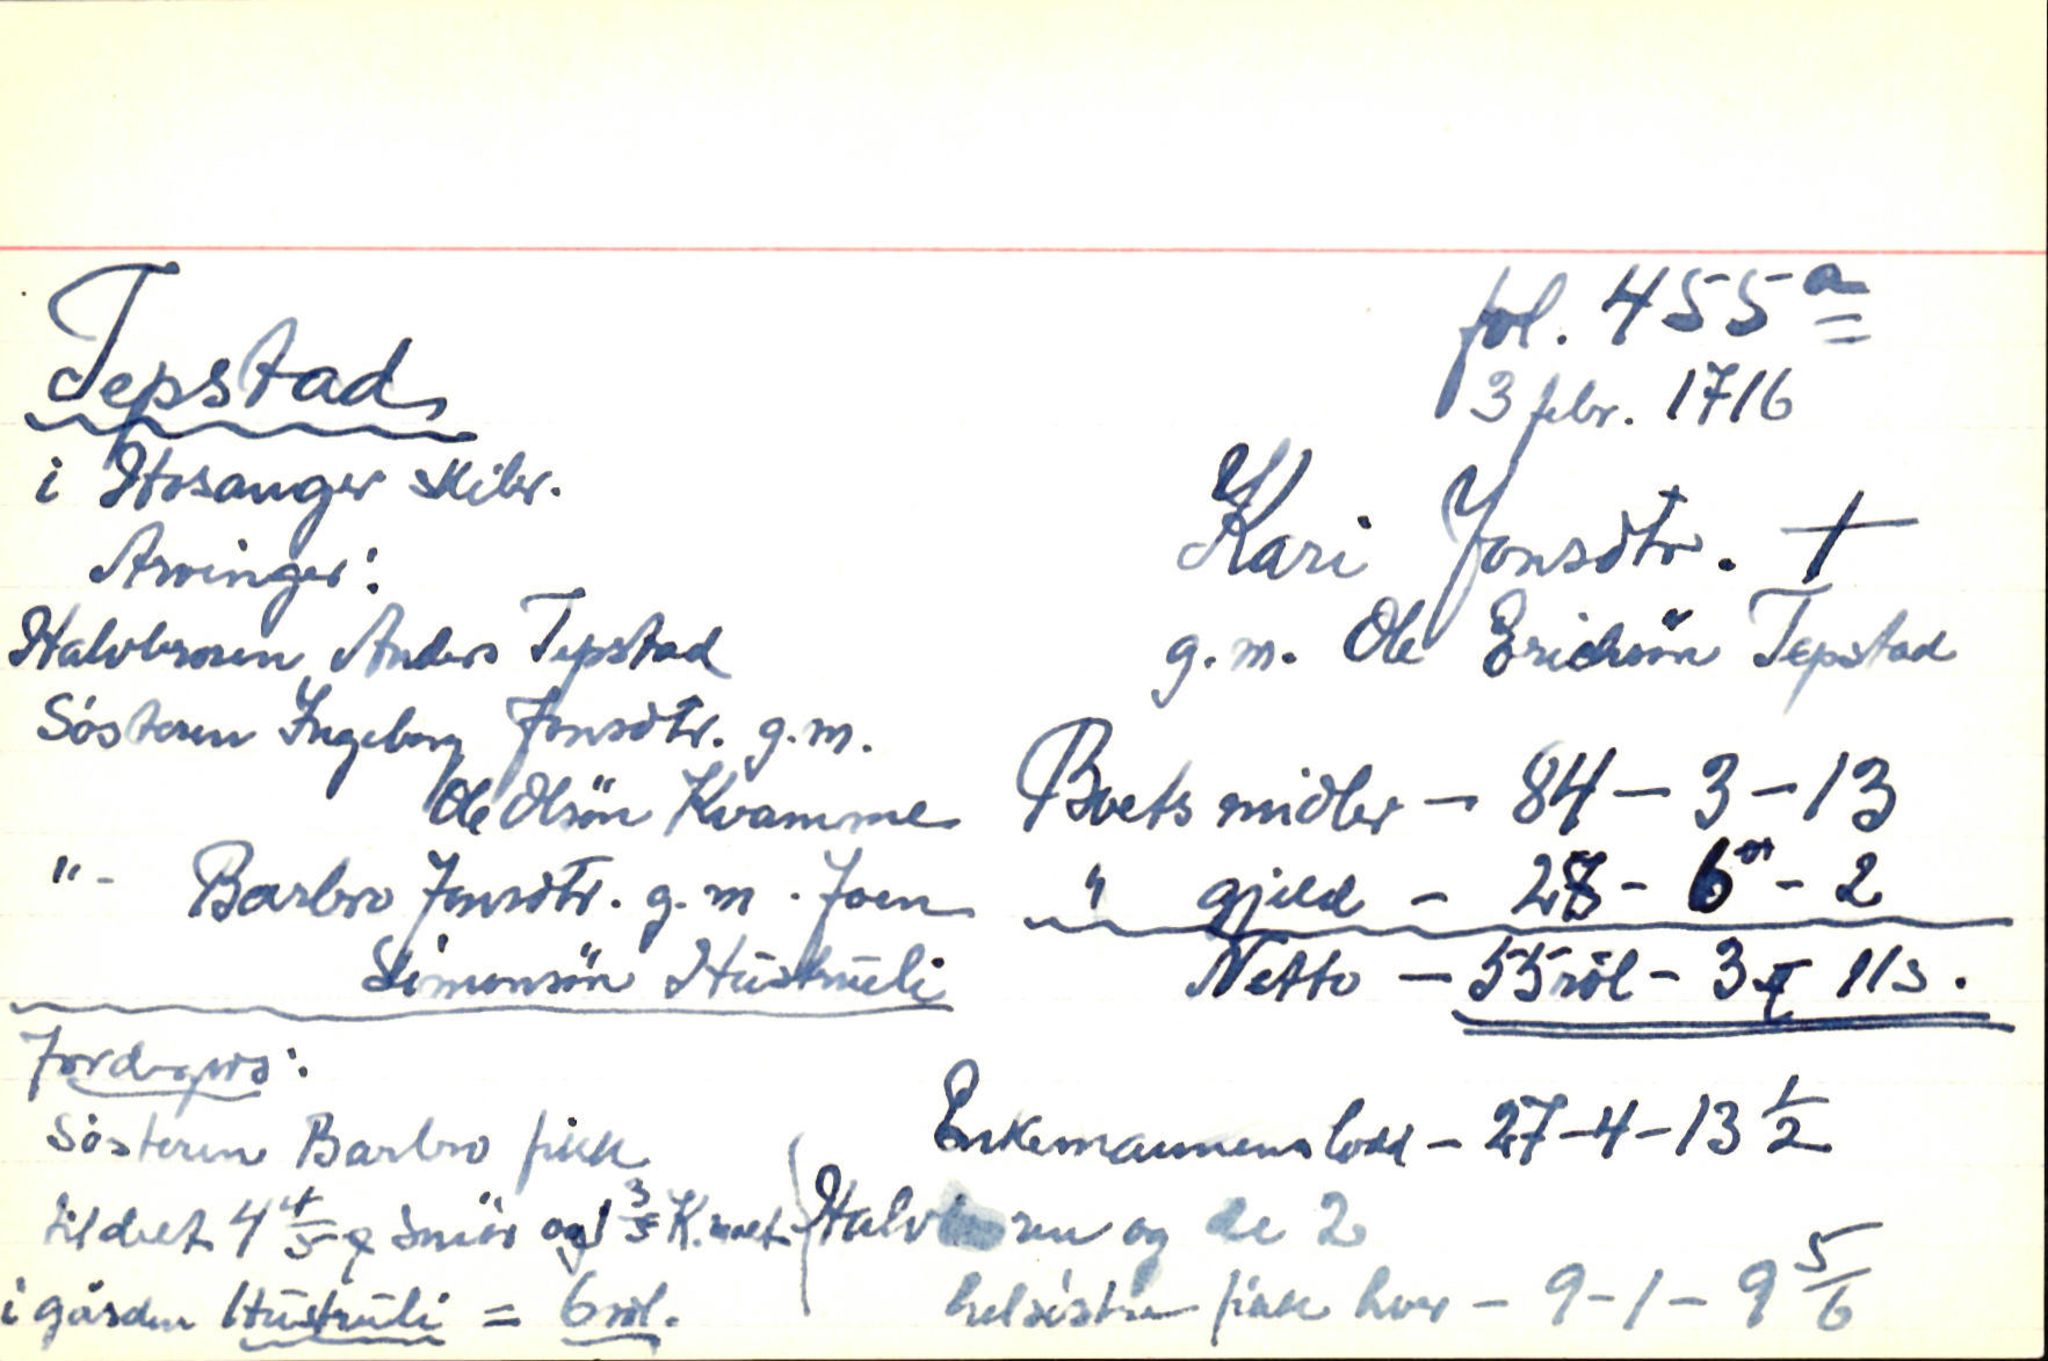 Tepstad
i Hosanger skibr.
Arvinger:
Halvbroren Anders Tepstad
Søsteren Ingeborg Jonsdtr. g.m.
Ole Olsön Kvamme
"- Barbro Jonsdtr. g.m. Joen
Simonsön Hustruli
Jordegods:
Søsteren Barbro fikk
tildelt 4 4/5 smör og 1 3/5 K.
i gården Hustruli = 6 rdl.
fol. 455 a
3 febr. 1716
Kari Jonsdtr. †
g.m. Ole Erichsön Tepstad
Boets midler - 84 - 3 - 13
" gjeld - 28 - 6 - 2
Netto - 55 rdl - 3 11 s.
Enkemannens lodd - 27 - 4 - 13 1/2
Halvbroren og de 2
helsöstre fikk hver - 9 - 1 - 9 5/6